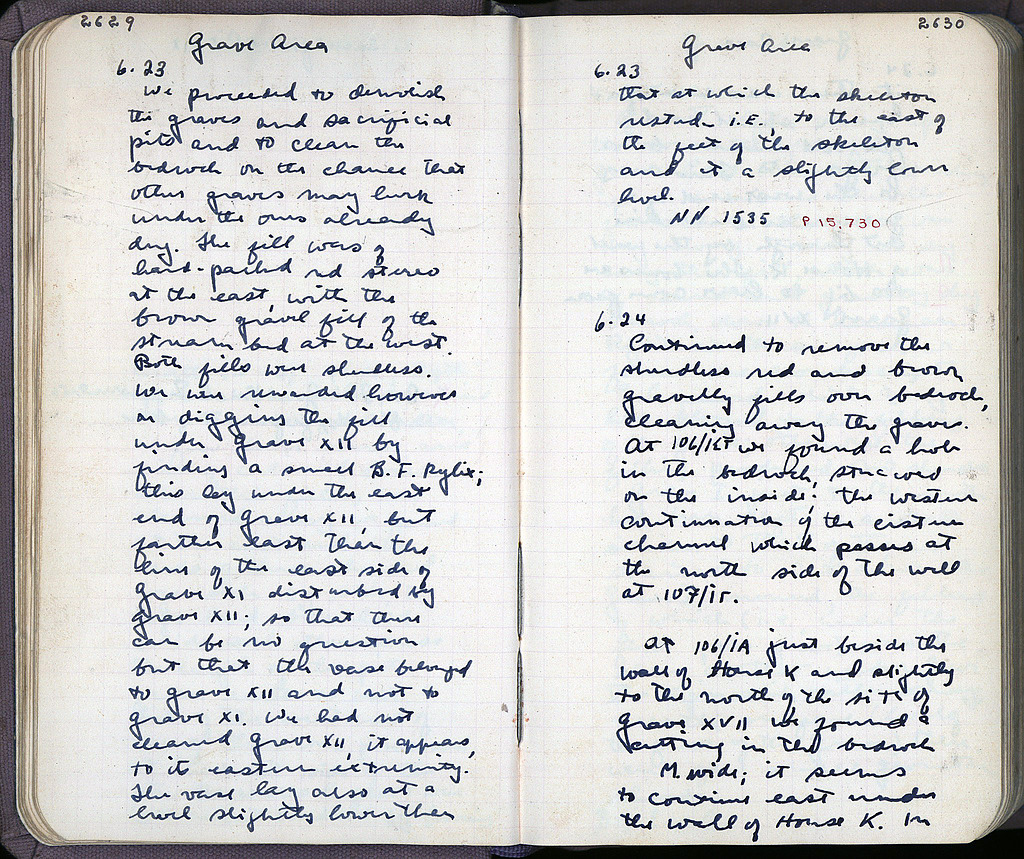 2629
Grave Area
6.23
We proceeded to demolish
the graves and sacrificial
pits and to clean the
bedrock on the chance that
other graves may lurk
under the ones already
dug. The fill was of
hard-packed red stereo
at the east, with the
brown gravel fill of the
stream bed at the west.
Both fills were sherdless.
We were rewarded however
in digging the fill
under grave XII by
finding a small B.F. Kylix;
this lay under the east
end of grave XII, but
farther east than the
line of the east side of
grave XI disturbed by
grave XII; so that there
can be no question
but that the vase belonged
to grave XII and not to
grave XI. We had not
cleaned grave XII, it appears,
to its eastern extremity.
The vase lay also at a
level slightly lower than
2630
Grave Area
6.23
that at which the skeleton
rested, i.E., to the east of
the feet of the skeleton
and at a slightly lower
level.
NN 1535 P 15,730
6.24
Continued to remove the
sherdless red and brown
gravelly fills over bedrock,
cleaning away the graves.
At 106/ we found a hole
in the bedrock, stuccoed
on the inside: the western
continuation of the cistern
channel which passes at
the north side of the well
at 107/.
At 106/ΙΑ just beside the
wall of House K and slightly
to the north of the site of
grave XVII we found a
cutting in the bedrock
M. wide; it seems
to continue east under
the wall of House K. In